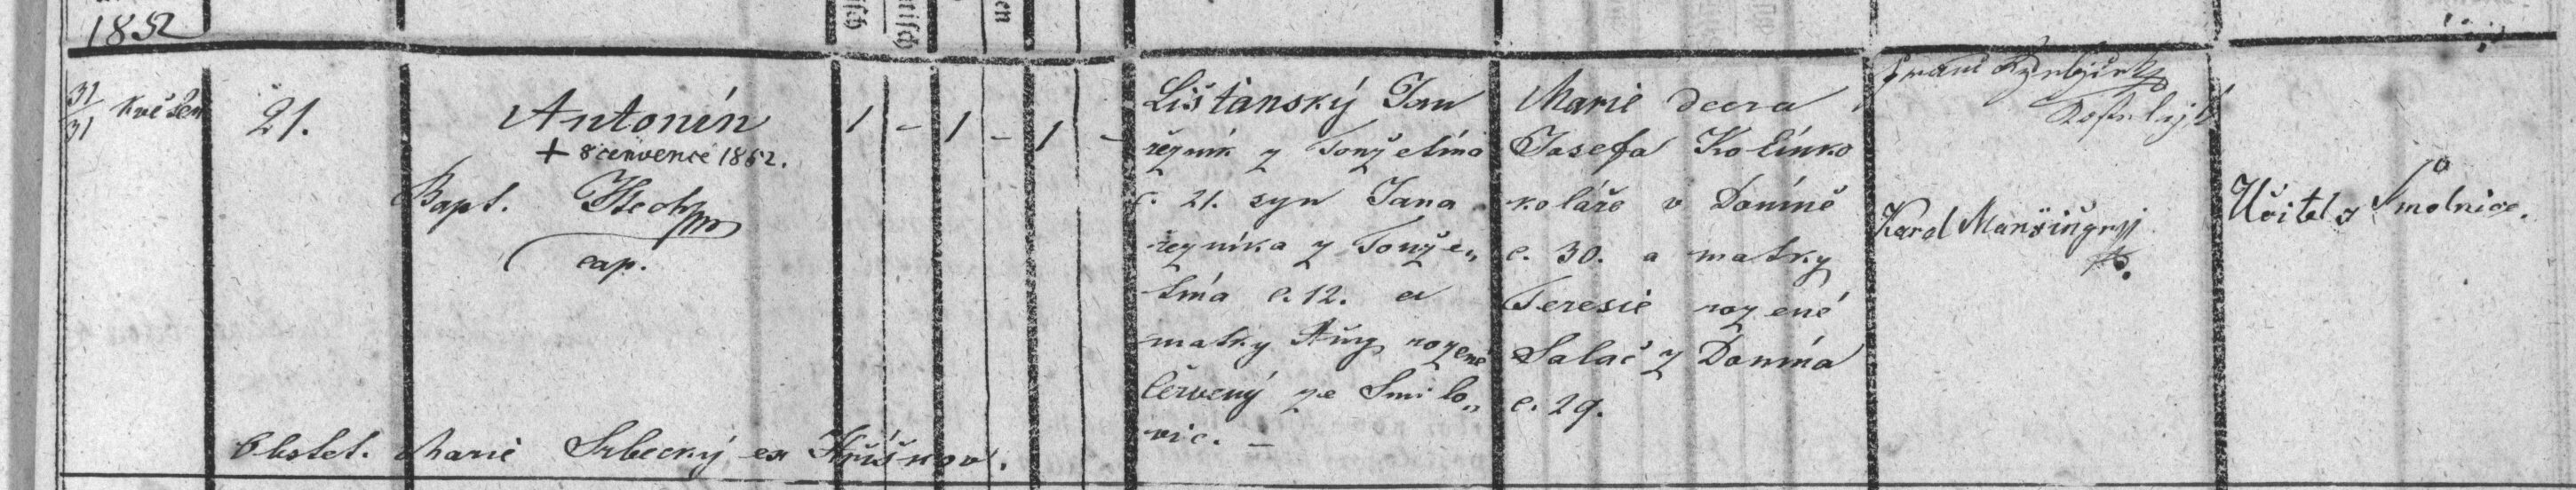 1852
31/31 Květen
21.
Antonín
+ 8 července 1852.
Bapt.
cap.
1 - 1 - 1 -
Lištanský Jan
řezník z Toužetína
č. 21. syn Jana
řezníka z Touže„
tína č. 12. a
matky Anny rozené
Červený ze Smilo„
vic. —
Marie dcera
Josefa Kolínko
koláře v Doníně
č. 30. a matky
Teresie rozené
Salač z Donína
č. 29.
Karel
Učitel z Smolnice.
Obstet. Marie Srbecký ex Hříškov.